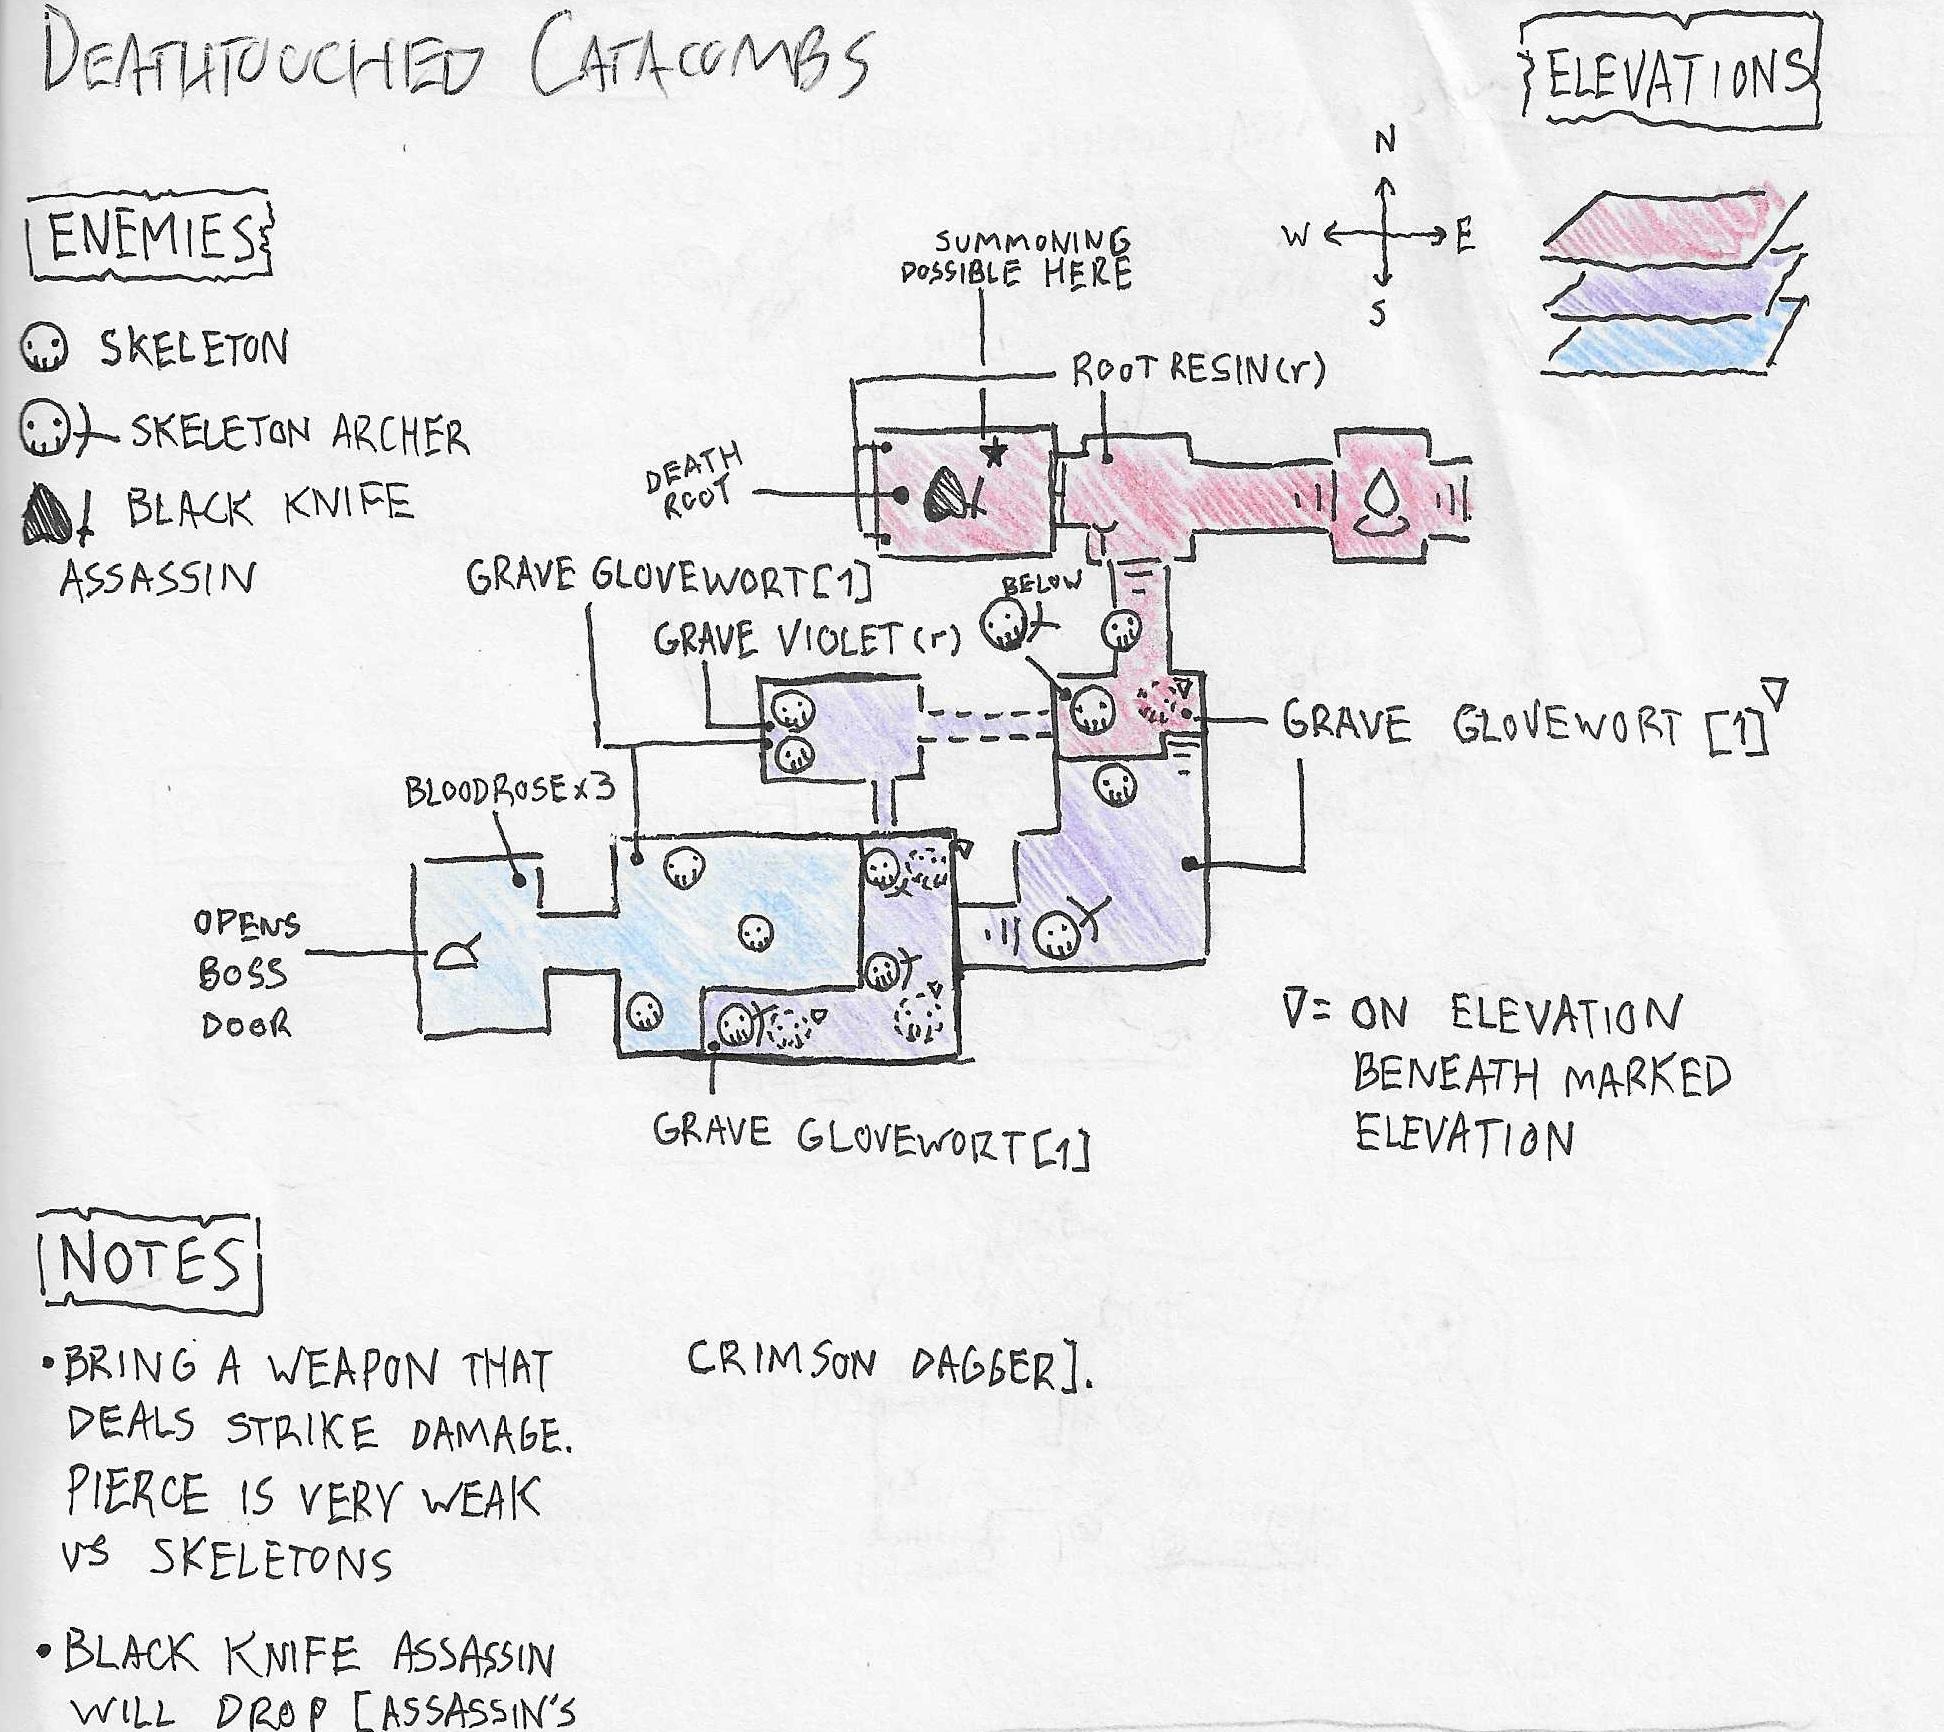 DEATHTOUCHED CATACOMBS
ELEVATIONS
N
W E
S
ENEMIES
SKELETON
SKELETON ARCHER
BLACK KNIFE
ASSASSIN
SUMMONING
POSSIBLE HERE
ROOT RESIN(r)
DEATH
ROOT
GRAVE GLOVEWORT[1]
BELOW
GRAVE VIOLET(r)
GRAVE GLOVEWORT [1]▽
BLOODROSE x3
OPENS
BOSS
DOOR
▽= ON ELEVATION
BENEATH MARKED
ELEVATION
GRAVE GLOVEWORT[1]
NOTES
•BRING A WEAPON THAT
DEALS STRIKE DAMAGE.
PIERCE IS VERY WEAK
VS SKELETONS
•BLACK KNIFE ASSASSIN
WILL DROP [ASSASSIN'S
CRIMSON DAGGER].